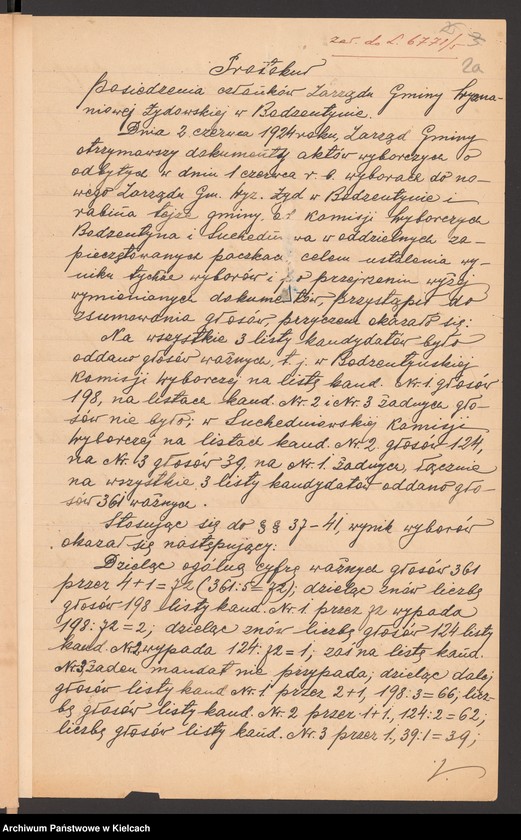 zał. do L. 6771/5
2a
Protokuł
posiedzenia członków Zarządu Gminy Wyzna-
niowej Żydowskiej w Bodzentynie.
Dnia 2 czerwca 1924 roku, Zarząd Gminy
otrzymawszy dokumenty aktów wyborczych o
odbytych w dniu 1 czerwca r. b. wyborach do no-
wego Zarządu Gm. Wyz. Żyd w Bodzentynie i
rabina tejże gminy, od Komisji Wyborczych
Bodzentyna i Suchedniowa w oddzielnych za-
pieczętowanych paczkach celem ustalenia wy-
niku tychże wyborów i po przejrzeniu wyżej
wymienionych dokumentów, przystąpił do
zsumowania głosów, przyczem okazało się:
Na wszystkie 3 listy kandydatów było
oddano głosów ważnych, t. j. w Bodzentyńskiej
Komisji Wyborczej na listę kand. Nr. 1 głosów
198, na listach kand. Nr. 2 i Nr. 3 żadnych gło-
sów nie było; w Suchedniowskiej Komisji
Wyborczej na listach kand. Nr. 2 głosów 124,
na Nr. 3 głosów 39, na Nr. 1 żadnych, łącznie
na wszystkie 3 listy kandydatów oddano gło-
sów 361 ważnych.
Stosując się do §§ 37-41, wynik wyborów
okazał się następujący:
Dzieląc ogólną cyfrę ważnych głosów 361
przez 4+1=72 (361:5=72); dzieląc znów liczbę
głosów 198 listy kand. Nr. 1 przez 72 wypada
198:72=2; dzieląc znów liczbę głosów 124 listy
kand. Nr. 2 wypada 124:72=1; zaś na listę kand.
Nr. 3 żaden mandat nie przypada; dzieląc dalej
głosów listy kand Nr. 1 przez 2+1, 198:3=66; licz-
bę głosów listy kand. Nr. 2 przez 1+1, 124:2=62;
liczbę głosów listy kand. Nr. 3 przez 1., 39:1=39;
Archiwum Państwowe w Kielcach